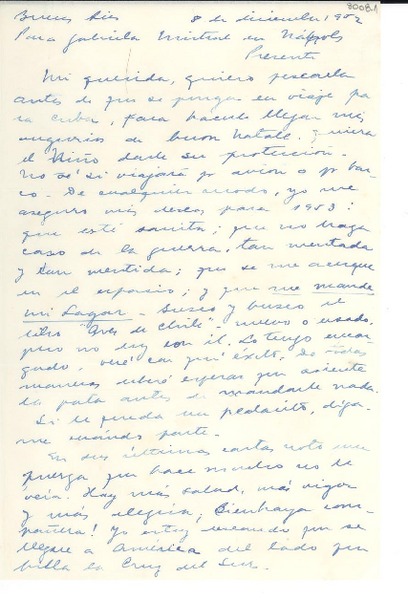 Buenos Aires 8 de diciembre 1952
80081
Para Gabriela Mistral en Nápoles
Presente
Mi querida, quiero pescarla
antes de que se ponga en viaje pa
ra Cuba, para hacerle llegar mis
augurios de buon Natale. Quiera
el Niño darle su protección.
No sé si viajará por avión o por bar-
co. De cualquier modo, yo me
aseguro mis deseos para 1953:
que esté sanita; que no haga
caso de la guerra, tan mentada
y tan mentida; que se me acerque
en el espacio; y que me mande
mi Lagar. Busco y busco el
libro "Aves de Chile" - nuevo o usado,
pero no doy con él. Lo tengo encar
gado, veré con qué éxito. De todas
maneras sabré esperar que asiente
la pata antes de mandarle nada.
Si le queda un pedacito, díga-
me cuándo parte.
En sus últimas cartas noto una
fuerza que hace mucho no le
veía. Hay más salud, más vigor
y más alegría; Bienhaya com-
pañera! Yo estoy deseando que se
llegue a América del lado que
brilla la Cruz del Sur.